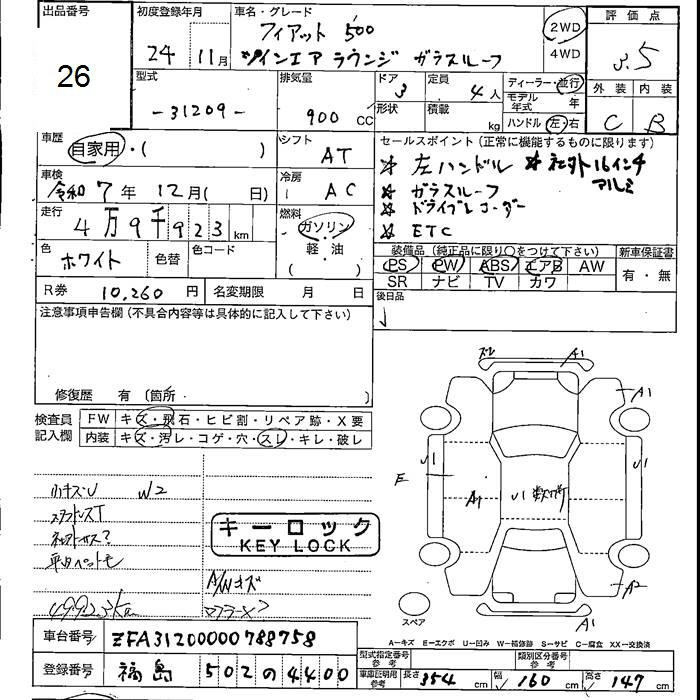 出品番号
26
初度登録年月
24年 11月
車名・グレード
フィアット 500
ツインエア ラウンジ ガラスルーフ
2WD
4WD
評価点
3.5
外装 内装
C B
型式
-31209-
排気量
900 CC
ドア
3
形状
定員
4人
積載
kg
ディーラー・並行
モデル年式 年
ハンドル 左・右
車歴
自家用・( )
シフト
AT
車検
令和 7年 12月( 日)
冷房
AC
走行
4万9千923km
燃料
ガソリン
軽・油
( )
色
ホワイト
色替
色コード
R券 10,260 円
名変期限 月 日
セールスポイント (正常に機能するものに限ります)
左ハンドル 社外16インチ
アルミ
ガラスルーフ
ドライブレコーダー
ETC
装備品 (純正品に限り○をつけて下さい)
新車保証書
PS PW ABS エアB AW
SR ナビ TV カワ
有・無
後日品
注意事項申告欄 (不具合内容等は具体的に記入して下さい)
修復歴 有 〔箇所 〕
検査員
記入欄
FW キズ・飛石・ヒビ割・リペア跡・X要
内装 キズ・汚レ・コゲ・穴・スレ・キレ・破レ
小キズU W2
キーロック
KEY LOCK
A/Wキズ
49923km
ズレ A1
A1
U1
E
A1
U1
U1
A2
A1
スペア
A-キズ E-エクボ U-凹み W-補修跡 S-サビ C-腐食 XX-交換済
車台番号 ZFA31200000788758
登録番号 福島 502 の 4400
型式指定番号
参考
類別区分番号
参考
車庫証明用
参考
長さ 354 cm
幅 160 cm
高さ 147 cm